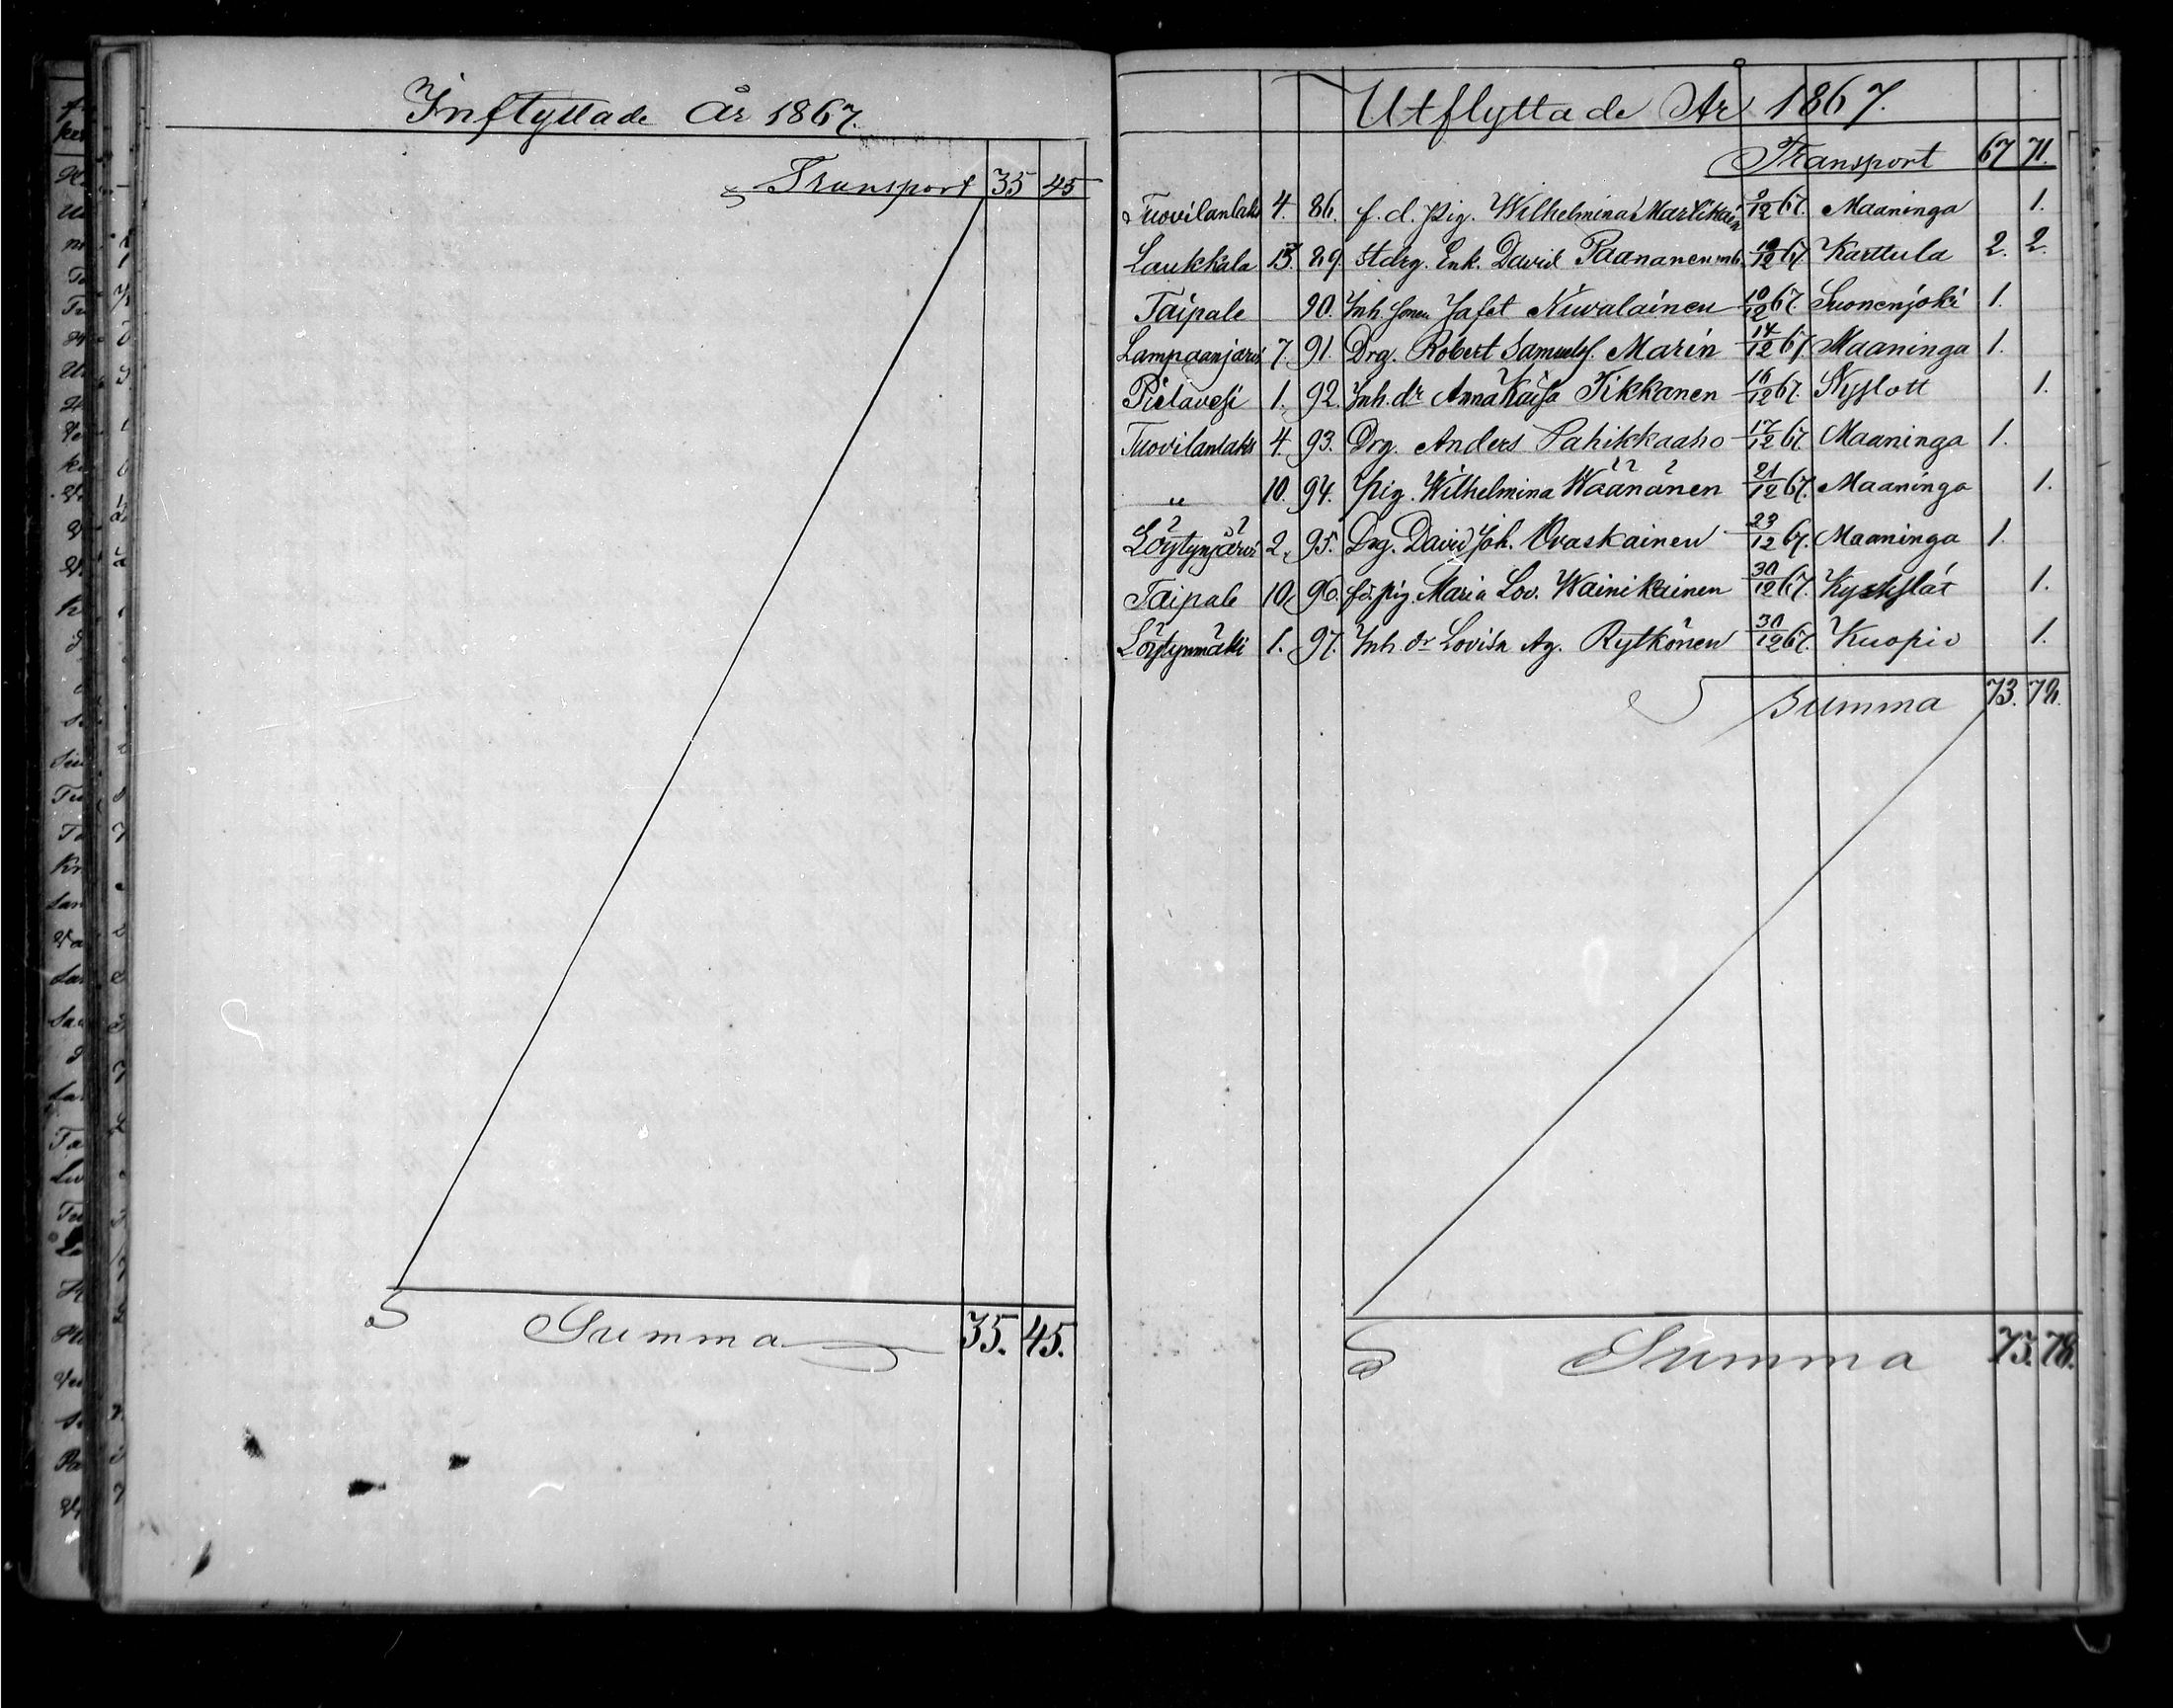 Inflyttade år 1867.
Transport 35 45
Summa 35. 45.
Utflyttade År 1867.
Transport 67 71.
Tuovilanlaks 4. 86. f.d. pig. Wilhelmina Martikain 9/12 67. Maaninga 1.
Laukkala 13. 89. Stdrg. Enk. David Paananen mb. 10/12 67 Karttula 2. 2.
Taipale 90. Inh. sonen Jafet Niuvalainen 10/12 67. Suonenjoki 1.
Lampaanjärvi 7. 91. Drg. Robert Samuelss. Marin 14/12 67 Maaninga 1.
Pielavesi 1. 92. Inh. dr Anna Kaisa Tikkanen 16/12 67. Nyslott 1.
Tuovilanlaks 4. 93. Drg. Anders Pahikkaaho 17/12 67. Maaninga 1.
" 10. 94. pig. Wilhelmina Wäänänen 21/12 67. Maaninga 1.
Löytynjärvi 2. 95. Drg. David Joh. Ovaskainen 23/12 67. Maaninga 1.
Taipale 10. 96. fd. pig. Maria Lov. Wainikainen 30/12 67. 1.
Löytynmäki 1. 97. Inh. dr Lovisa Ag. Rytkönen 30/12 67. Kuopio 1.
Summa 73. 78.
Summa 73. 78.